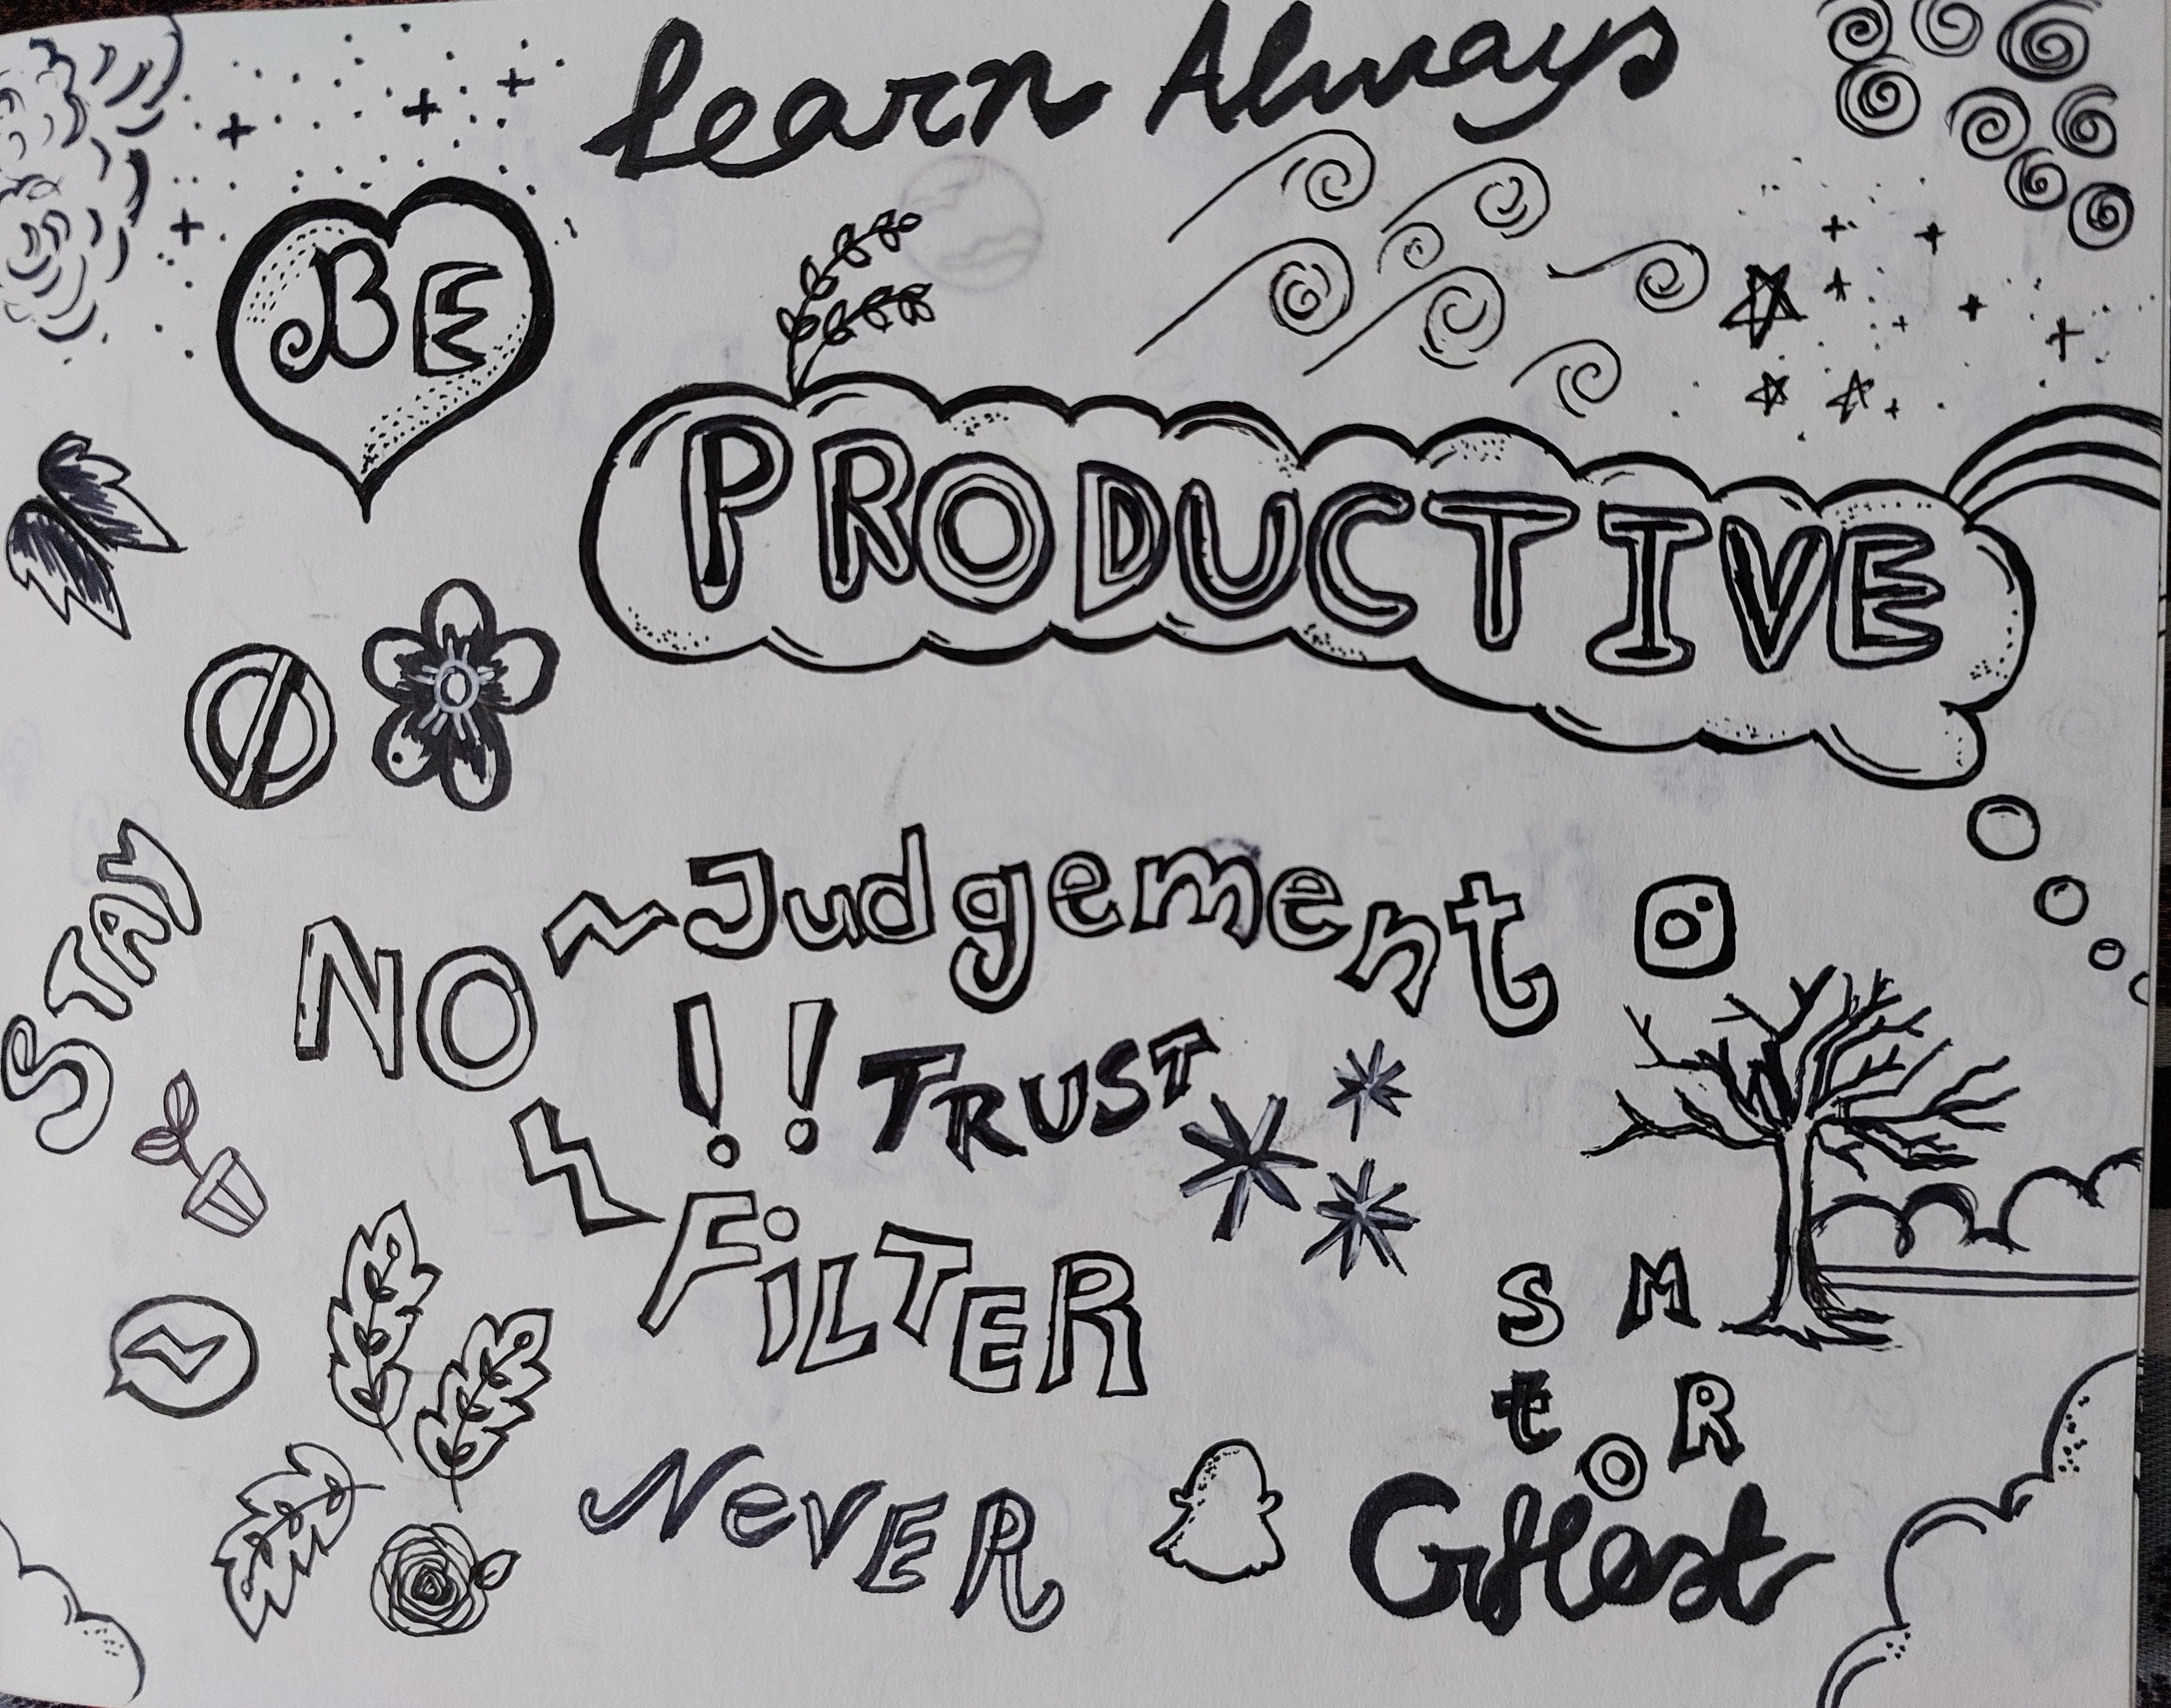 Learn Always
BE
PRODUCTIVE
STAY
NO ~Judgement
!! TRUST
FiLTER
S M
t O R
NeVER
GHost